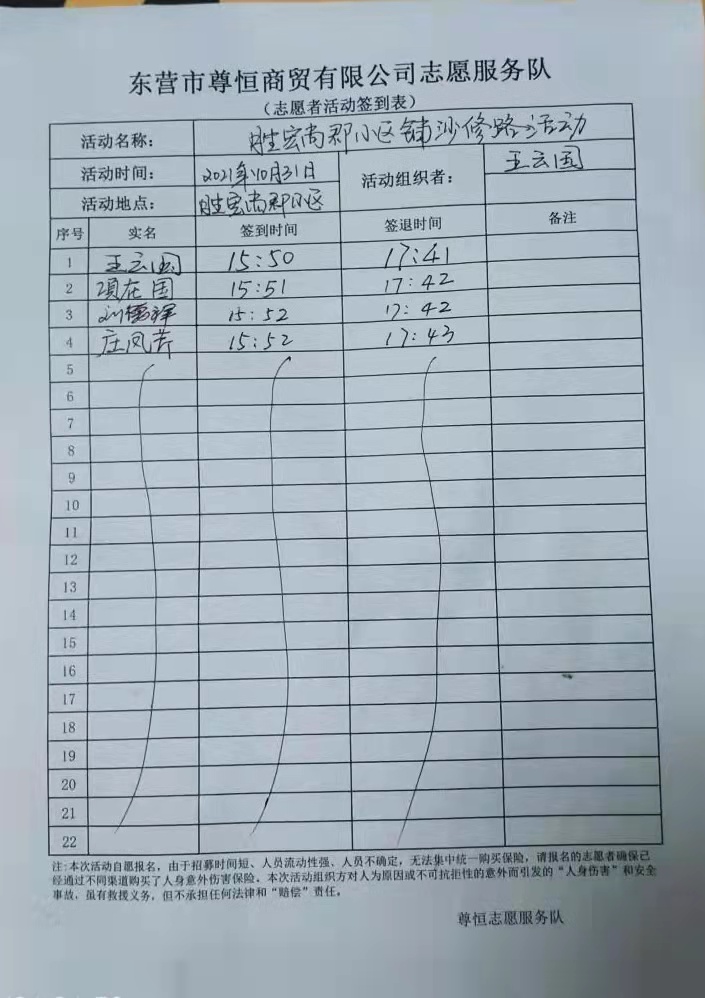 东营市尊恒商贸有限公司志愿服务队
（志愿者活动签到表）
活动名称： 胜宏尚郡小区铺沙修路活动
活动时间： 2021年10月31日 活动组织者： 王云国
活动地点： 胜宏尚郡小区
序号 实名 签到时间 签退时间 备注
1 王云国 15:50 17:41
2 项在国 15:51 17:42
3 刘德祥 15:52 17:42
4 庄凤芹 15:52 17:43
5
6
7
8
9
10
11
12
13
14
15
16
17
18
19
20
21
22
注:本次活动自愿报名，由于招募时间短、人员流动性强、人员不确定，无法集中统一购买保险，请报名的志愿者确保已
经通过不同渠道购买了人身意外伤害保险。本次活动组织方对人为原因或不可抗拒性的意外而引发的“人身伤害”和安全
事故，虽有救援义务，但不承担任何法律和“赔偿”责任。
尊恒志愿服务队